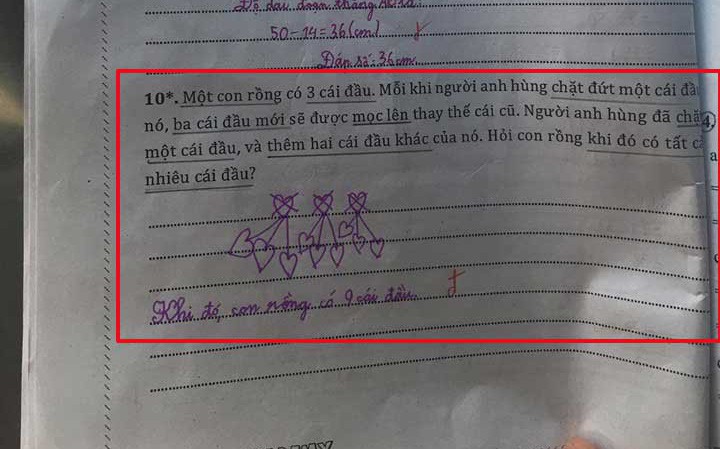 Độ dài đoạn thẳng
50 - 14 = 36 (cm)
Đáp số: 36 cm
10*. Một con rồng có 3 cái đầu. Mỗi khi người anh hùng chặt đứt một cái
nó, ba cái đầu mới sẽ được mọc lên thay thế cái cũ. Người anh hùng đã
một cái đầu, và thêm hai cái đầu khác của nó. Hỏi con rồng khi đó có tất
nhiêu cái đầu?
Khi đó, con rồng có 9 cái đầu